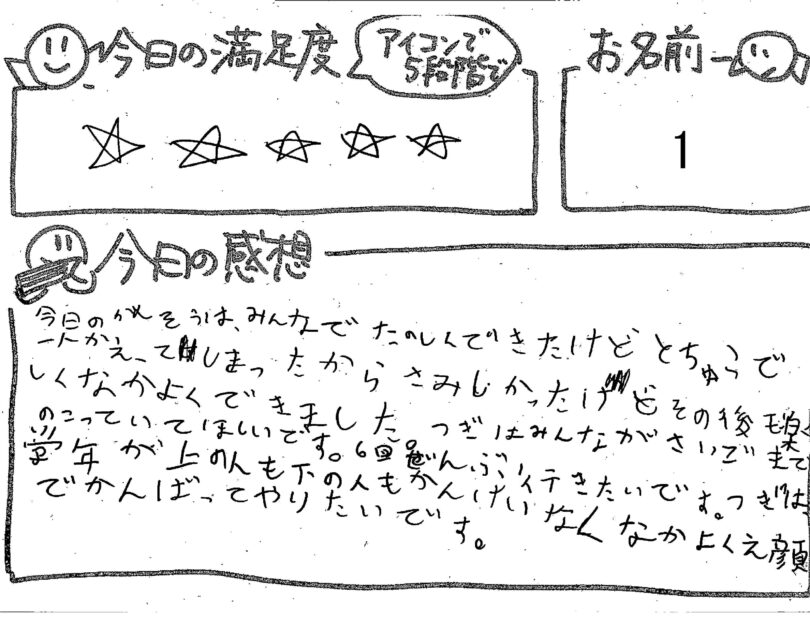 今日の満足度
アイコンで
5段階で
お名前
1
今日の感想
今日のがそうは、みんなでたのしくできたけどとちゅうで
一人かえってしまったからさみしかったけどその後も楽
しくなかよくできました。つぎはみんながさいごまで
のこっていてほしいです。6回ぜんぶ行きたいです。つぎは、
学年が上のんも下の人もかんけいなくなかよくえ顔
でがんばってやりたいです。